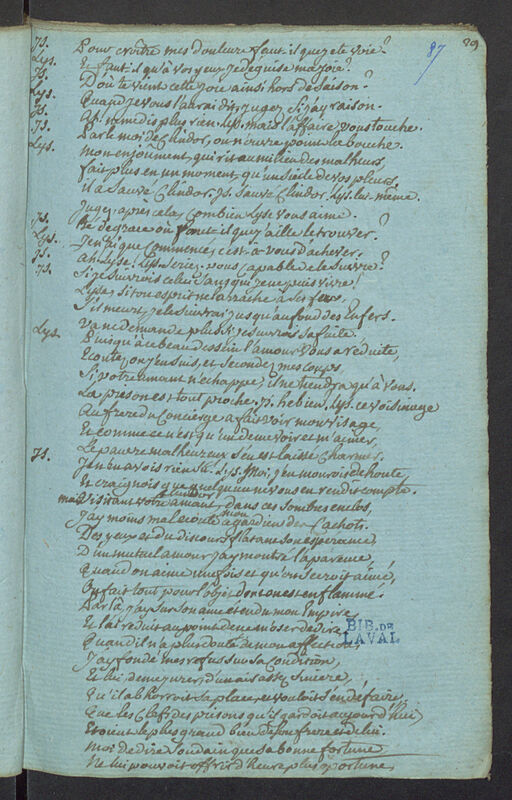 87 29
Js. Pour croître mes douleurs faut-il que je te voie?
Lys. Et faut-il qu'à vos yeux je déguise ma joie?
Js. D'où te vient cette joie ainsi hors de saison?
Lys. Quand je vous l'aurai dit, jugez si j'ay raison.
Js. Ah! ne me dis plus rien. Lys. mais l'affaire vous touche.
Js. Parle moi de Clindor, ou n'ouvre point la bouche.
Lys. Mon enjoûment qui rit au milieu des malheurs,
fait plus en un moment qu'un siecle de vos pleurs,
il a sauvé Clindor. Js. Sauvé Clindor! Lys. lui-même.
Jugez après cela, combien Lys. vous aime.
Js. Hé de grace où faut-il que j'aille le trouver?
Lys. Je n'ay que commencé, c'est-à-vous d'achever.
Js. Ah Lyse! Lys. Seriez-vous capable de le suivre?
Js. Si je suivrois celui sans qui je ne puis vivre!
Lyse, si ton esprit ne l'arrache à ses fers,
S'il meurt, je le suivrai jusqu'au fond des Enfers.
Va ne demande plus si je suivrois sa fuite.
Lys. Puisqu'à ce beau dessein l'amour vous a réduite,
Ecoutez où j'en suis, et secondez mes coups,
Si votre amant n'échappe, il ne tiendra qu'à vous.
La prison est tout proche. Js. hé bien. Lys. ce voisinage
Au frere du Concierge a fait voir mon visage,
Et comme ce n'est qu'un de me voir et m'aimer,
Le pauvre malheureux s'en est laissé charmer.
Js. Je n'en avois rien su. Lys. Moi, j'en mourois de honte,
Et craignois que quelqu'un ne vous en rendît compte.
mais visitant votre amant Clindor, dans ces sombres enclos,
J'ay moins mal écouté mon gardien des Cachots.
Des yeux et du discours flatant son espérance,
D'un mutuel amour j'ay montré l'apparence,
Quand on aime une fois et qu'on se croit aimé,
On fait tout pour l'objet dont on est enflammé.
Par là, j'ay sur son ame étendu mon Empire
Et l'ai réduit au point de ne m'oser dédire,
Quand il n'a plus douté de mon affection,
J'ay fondé mes refus sur sa condition,
Et lui, de me jurer, d'un air assez sincère,
Qu'il abhorroit sa place, et vouloit s'en défaire,
Que les Clefs des prisons qu'il gardoit aujourd'hui
Etoient le plus grand bien de son frere et de lui.
Moi de dire soudain que sa bonne fortune
Ne lui pouvoit offrir d'heure plus oportune,
BIB. DE
LAVAL